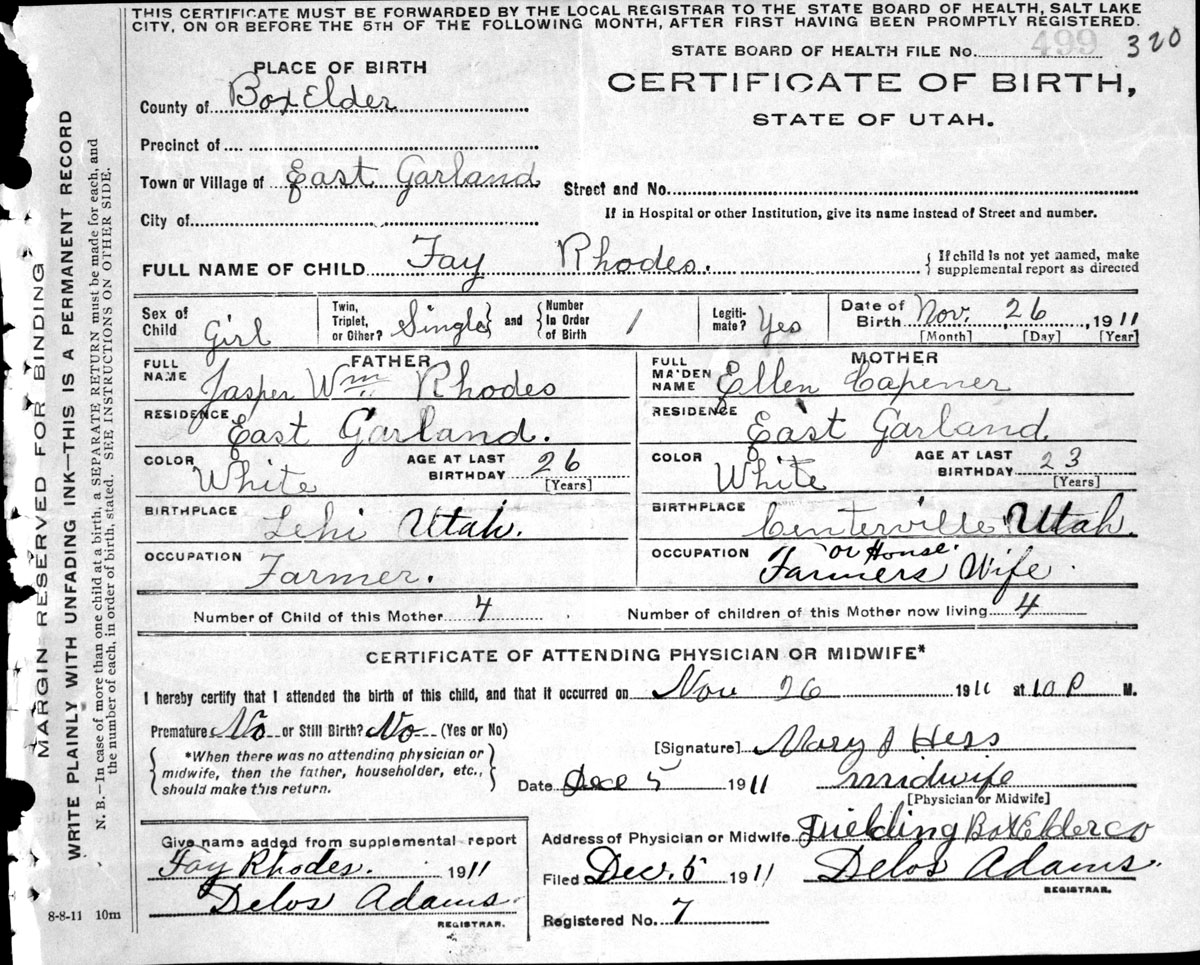 THIS CERTIFICATE MUST BE FORWARDED BY THE LOCAL REGISTRAR TO THE STATE BOARD OF HEALTH, SALT LAKE
CITY, ON OR BEFORE THE 5TH OF THE FOLLOWING MONTH, AFTER FIRST HAVING BEEN PROMPTLY REGISTERED.
STATE BOARD OF HEALTH FILE No. 499 320
PLACE OF BIRTH
CERTIFICATE OF BIRTH,
STATE OF UTAH.
County of Box Elder
Precinct of
Town or Village of East Garland
Street and No.
City of
If in Hospital or other Institution, give its name instead of Street and number.
FULL NAME OF CHILD Fay Rhodes. { If child is not yet named, make
supplemental report as directed
Sex of Child Girl
Twin, Triplet, or Other? Single } and { Number In Order of Birth 1
Legiti-mate? Yes
Date of Birth Nov. 26, 1911
[Month] [Day] [Year]
FATHER
FULL NAME Jasper Wm Rhodes
RESIDENCE East Garland.
COLOR White AGE AT LAST BIRTHDAY 26
[Years]
BIRTHPLACE Lehi Utah.
OCCUPATION Farmer.
MOTHER
FULL MAIDEN NAME Ellen Capener
RESIDENCE East Garland.
COLOR White AGE AT LAST BIRTHDAY 23
[Years]
BIRTHPLACE Centerville Utah.
OCCUPATION or House.
Farmers Wife.
Number of Child of this Mother 4 Number of children of this Mother now living 4
CERTIFICATE OF ATTENDING PHYSICIAN OR MIDWIFE*
I hereby certify that I attended the birth of this child, and that it occurred on Nov 26 1911 at 10 P M.
Premature No or Still Birth? No (Yes or No)
*When there was no attending physician or
midwife, then the father, householder, etc.,
should make this return.
[Signature] Mary J Hess
Date Dec 5 1911 midwife
[Physician or Midwife]
Give name added from supplemental report
Fay Rhodes. 1911
Delos Adams.
REGISTRAR.
Address of Physician or Midwife Fielding Box Elder co
Filed Dec. 5 1911 Delos Adams.
REGISTRAR.
Registered No. 7
8-8-11 10m
MARGIN RESERVED FOR BINDING
WRITE PLAINLY WITH UNFADING INK—THIS IS A PERMANENT RECORD
N. B.—In case of more than one child at a birth, a SEPARATE RETURN must be made for each, and
the number of each, in order of birth, stated. SEE INSTRUCTIONS ON OTHER SIDE.